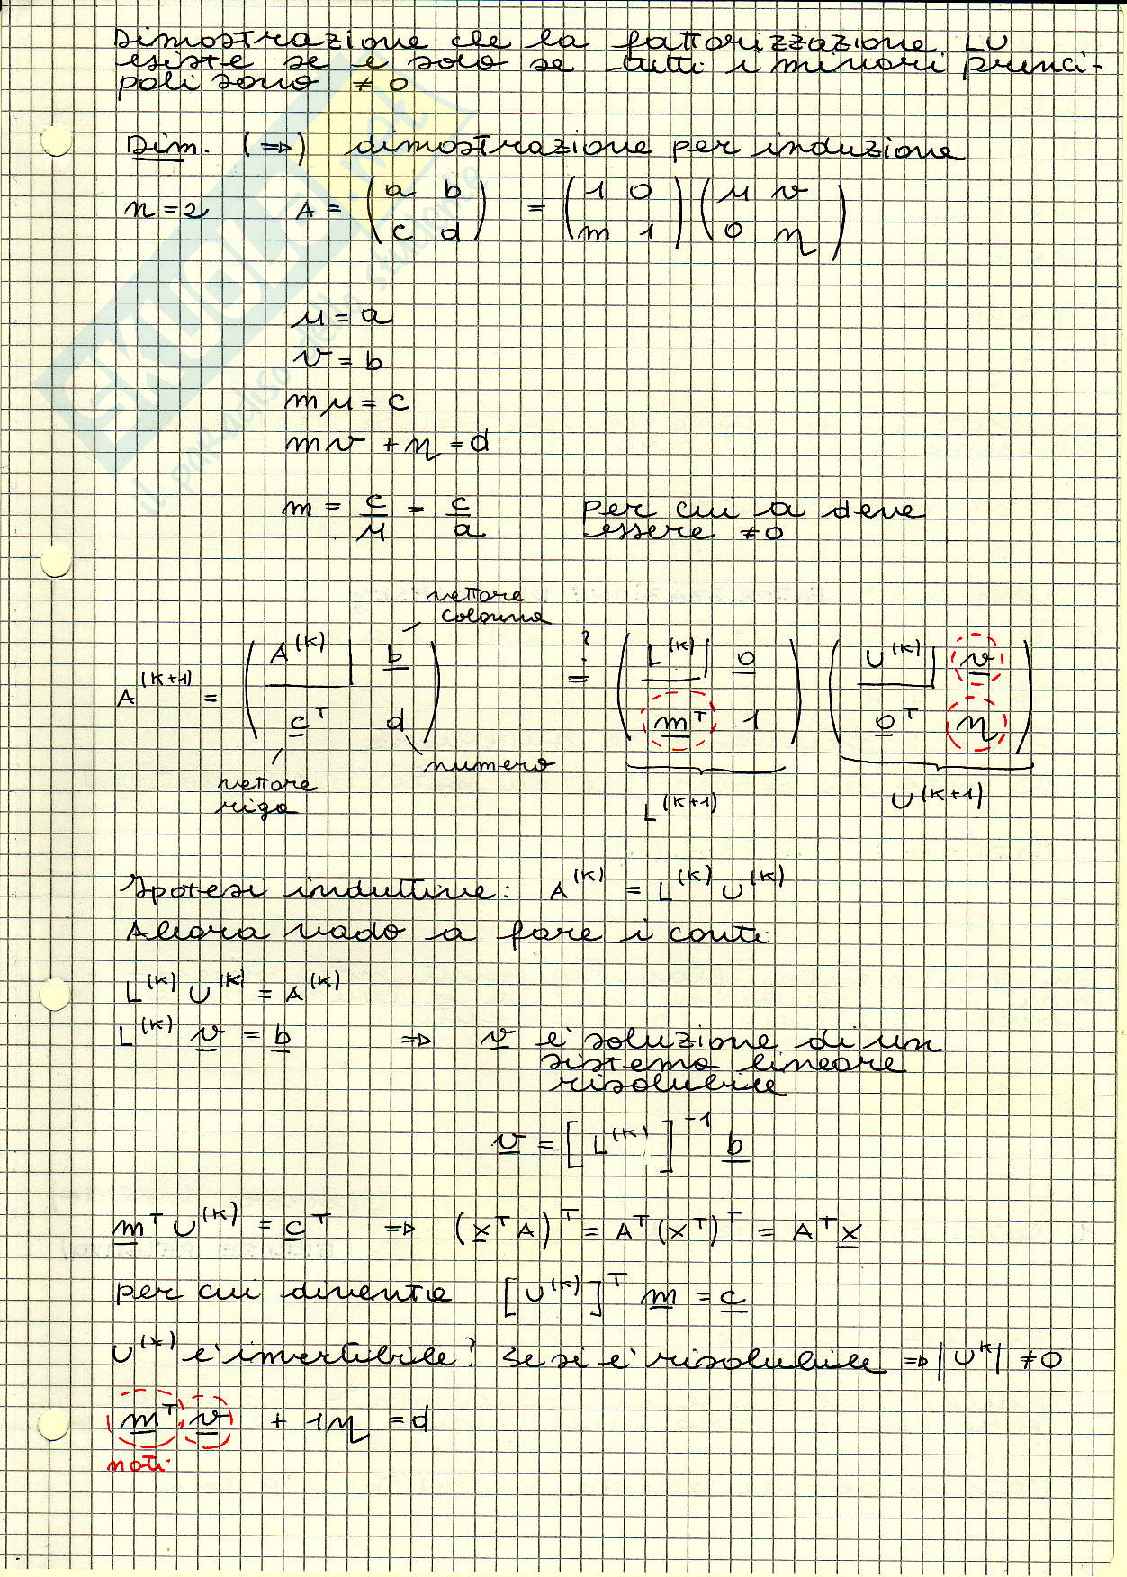 Dimostrazione che la fattorizzazione LU
esiste se e solo se tutti i minori princi-
pali sono ≠ 0
Dim. (⇒) dimostrazione per induzione
n = 2   A = (a b; c d) = (1 0; m 1) (μ v; 0 η)
μ = a
v = b
mμ = c
mv + η = d
m = c/μ = c/a   per cui a deve
essere ≠ 0
vettore
colonna
A^(K+1) = (A^(K) b; c^T d) ?= (L^(K) 0; m^T 1) (U^(K) v; 0^T η)
numero
vettore
riga
L^(K+1)   U^(K+1)
Ipotesi induttive: A^(K) = L^(K) U^(K)
Allora vado a fare i conti
L^(K) U^(K) = A^(K)
L^(K) v = b ⇒ v è soluzione di un
sistema lineare
risolubile
v = [L^(K)]^-1 b
m^T U^(K) = c^T ⇒ (x^T A)^T = A^T (x^T)^T = A^T x
per cui diventa [U^(K)]^T m = c
U^(K) è invertibile? Se si è risolubile ⇒ |U^K| ≠ 0
m^T v + 1η = d
noti